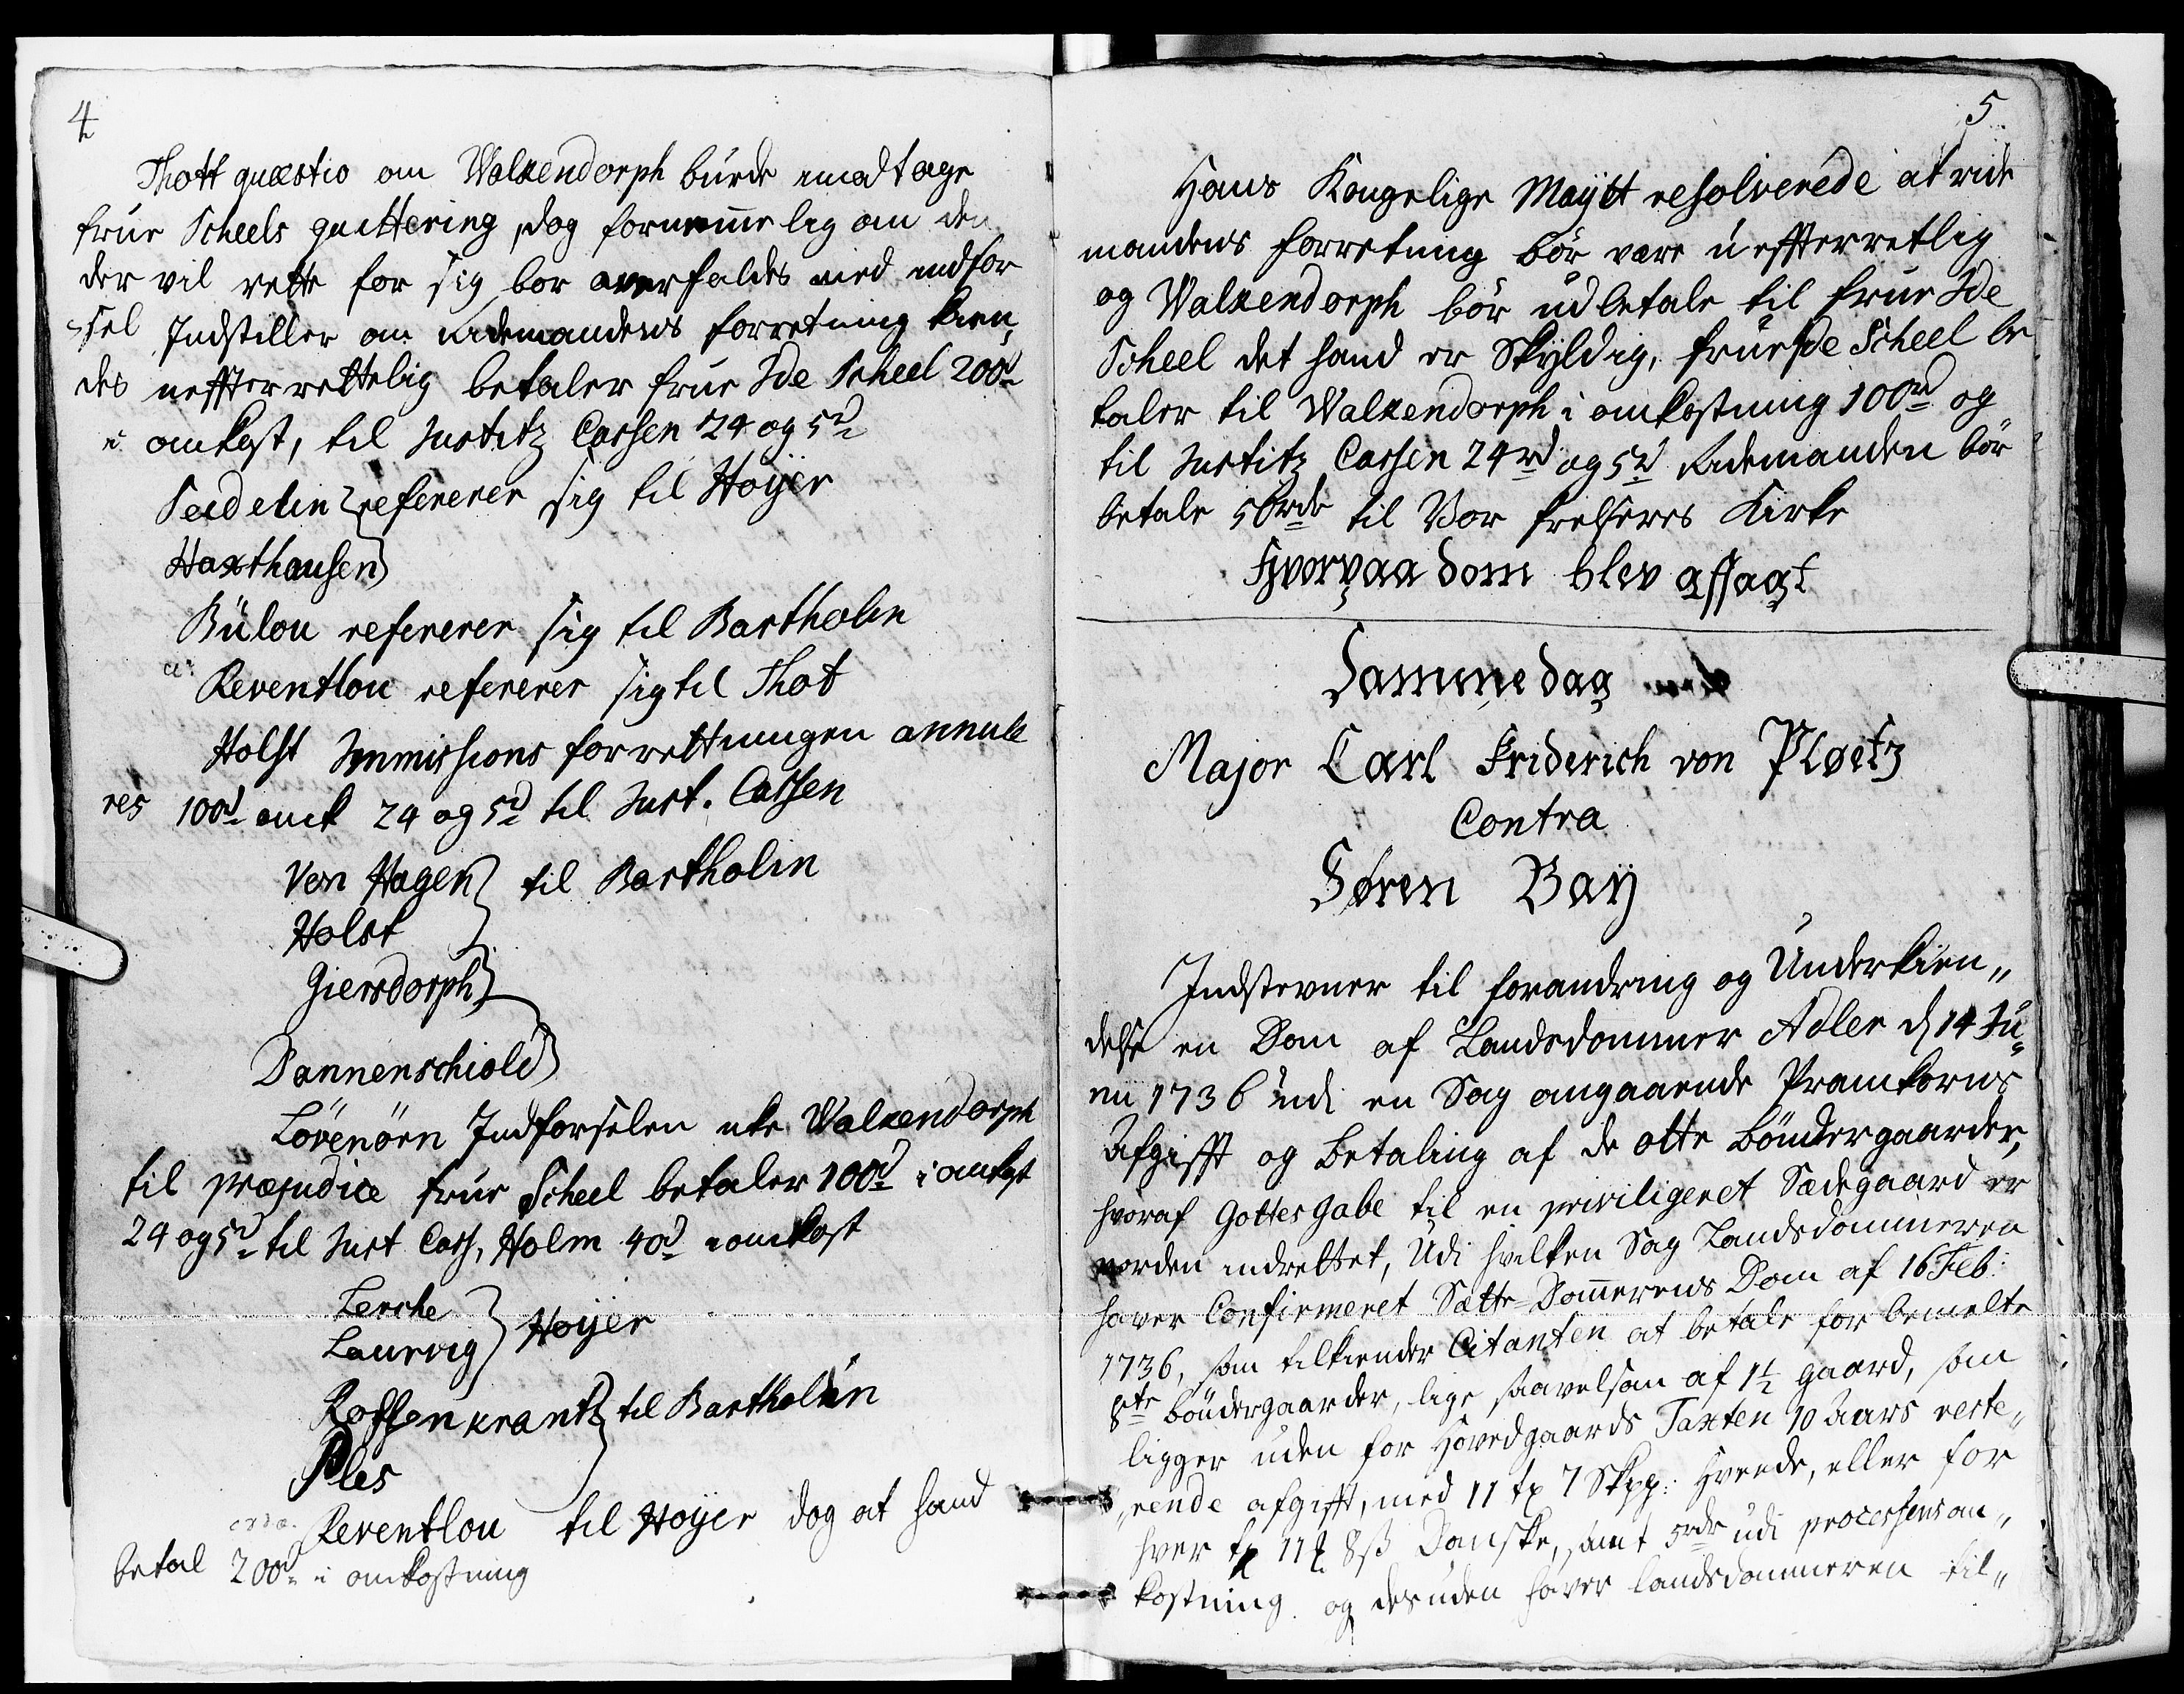 4
Thott quæstio om Walkendorph burde imodtage
frue Scheels qvittering, dog fornemmelig om den
der vil rette for sig bor overfaldes med indfør
sel Indstiller om Ridemandens forretning kien¬
des uefterrettelig betaler frue Ide Scheel 200d
i omkost, til Justitz Cassen 24 og 5d
Seidelin refererer sig til Høyer
Haxthausen
Bülou refererer sig til Bartholin
Reventlou refererer sig til Thot
Holst Immissions forrettningen annule
res 100d omk 24 og 5d til Just. Cassen
Von Hagen til Bartholin
Holst
Giersdorph
Dannenschiold
Lövenörn Indførselen uke Walkendorph
til præjudice frue Scheel betaler 100d i omkost
24 og 5d til Just Cass, Holm 40d i omkost
Lerche
Laurvig Høyer
Rossenkrantz til Bartholin
Ples
Reventlou til Høyer dog at hand
betal 200d i omkostning
5
Hans Kongelige Maytt resolverede at ride
mandens forretning bør være uefterretlig
og Walkendorph bør udbetale til frue Ide
Scheel det hand er skyldig, frue Ide Scheel be
taler til Walkendorph i omkostning 100rd og
til Justitz Cassen 24rd og 5d Ridemanden bør
betale 50rdr til Vor frelseres Kirke
Hvorpaa dom blev afsagt
Samme dag
Major Carl Friderich von Pløetz
Contra
Søren Baÿ
Indstevner til forandring og Underkien„
delse en Dom af Landsdommer Adler d 14 Ju¬
nii 1736 udi en Sag angaaende Pramkorns
Afgifft og Betaling af de otte bøndergaarder,
hvoraf Gottes Gabe til en priviligeret Sædegaard er
vorden indrettet, Udi hvilken Sag Landsdommeren
haver Confirmeret Sætte-Dommerens Dom af 16 Feb:
1736, som tilkiender Citanten at betale for bemelte
8te bøndergaarder, lige saavelsom af 1½ gaard, som
ligger uden for Hovedgaards Taxten 10 Aars reste„
„rende afgifft, med 11 tx 7 Skpp: Hveede, eller for
hver tx 11 ₰ 8ß Danske, samt 5rdr udi processens om„
kostning og desuden haver landsdommeren til„